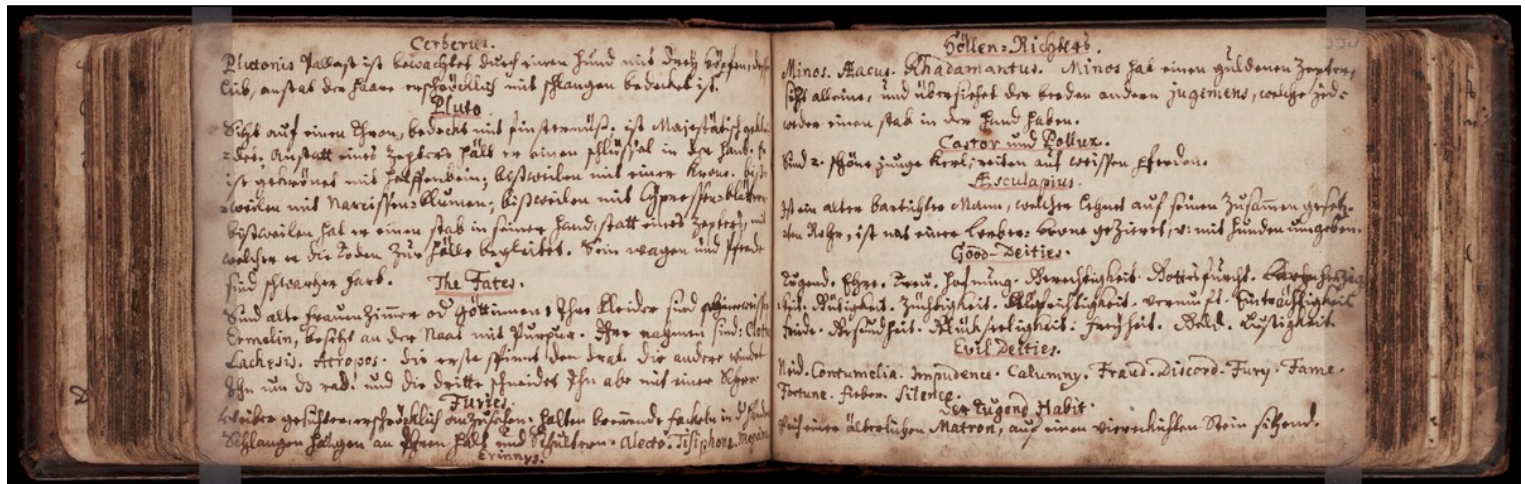 Cerberus.
Plutonis Pallast ist bewachtet durch einen Hund mit dreÿ Köpfen, deßen
Leib, anstat der Haare erschröcklich mit schlangen bedecket ist.
Pluto
Sitzt auf einen Thron, bedeckt mit finsternüß. ist Majestätisch geklei
=det. Anstatt eines Zepters hält er einen schlüssel in der Hand. Er
ist gekrönet mit Helffenbein; bißweilen mit einer Krone. biß=
=weilen mit Narcissen=Blumen; bißweilen mit Cÿpressen=blätter
bißweilen hat er einen stab in seiner Hand, statt eines Zepters, mit
welcher er die Toden zur Hölle begleitet. Sein wagen und Pferde
sind schwartzer farb.
The Fates.
Sind alte frauenzimmer od Göttinnen; Ihre Kleider sind
Ermelin, besetzt an der Naat mit Purpur. Ihre nahmen sind: Clotho
Lachesis. Atropos. die erste spinnet den drat. die andere windet
Ihn um das rad: und die dritte schneidet Ihn abe mit einer Scheer
Furies.
Weiber gesichter erschröcklich anzusehen. halten brennende fackeln in d Händen
Schlangen hängen an Ihren Halß und Schultern. Alecto. Tisiphone. Megæra
Erinnys.
Höllen=Richters.
Minos. Æacus. Rhadamantus. Minos hat einen güldenen Zepter,
sitzt alleine, und übersiehet der beeden andern jugemens, welche jed=
weder einen stab in der Hand haben.
Castor und Pollux.
Sind 2. schöne junge Kerl; reiten auf weissen Pferden.
Æsculapius.
Ist ein alter bartichter Mann, welcher lehnet auf seinen zusamen gesetz=
ten Rohr, ist mit einer Lorber=Krone gezieret, u: mit Hunden umgeben.
Good-Deities.
Tugend. Ehre. Treu. Hofnung. Gerechtigkeit. Gottesfurcht. Barmhertzig
keit. Gütigkeit. Züchtigkeit. Aufrichtigkeit. vernunft. Einträchtigkeit
friede. Gesundheit. Glückseeligkeit. freÿheit. Geld. Lustigkeit.
Evil Deities.
Neid. Contumelia. Impudence. Calumny. Fraud. Discord. Fury. Fame.
Fortune. fieber. Silence.
Der Tugend Habit.
Gleich einer älterlichen Matron, auf einen viereckichten Stein sitzend.